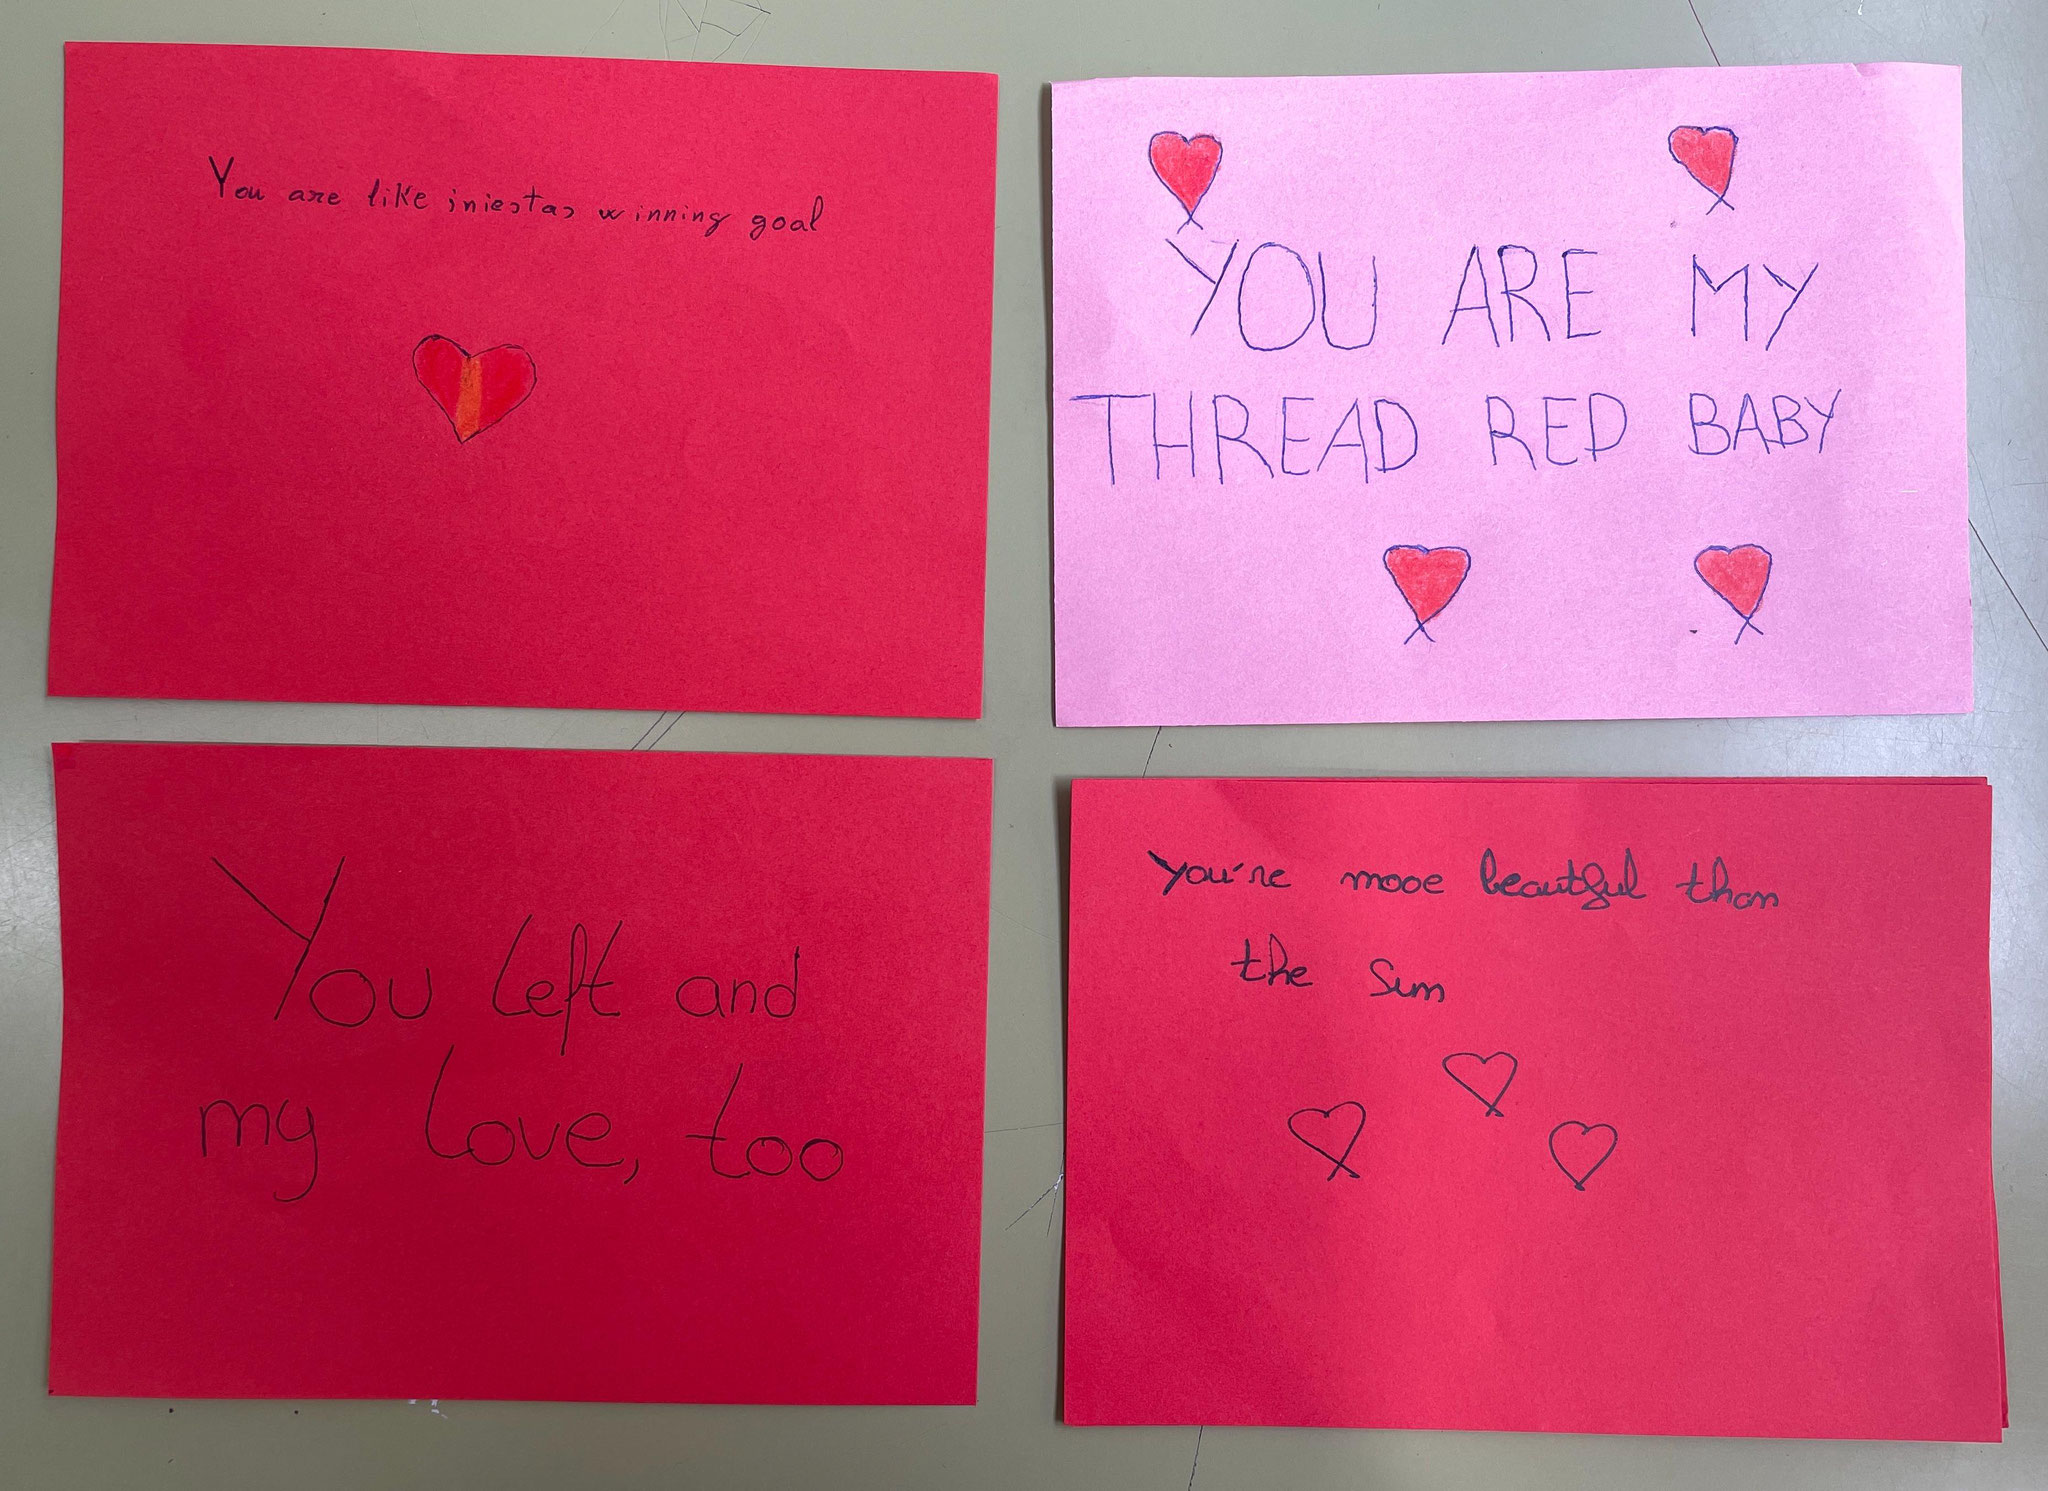 You are like iniestas winning goal
YOU ARE MY
THREAD RED BABY
You left and
my love, too
you're mooe beautful than
the Sun